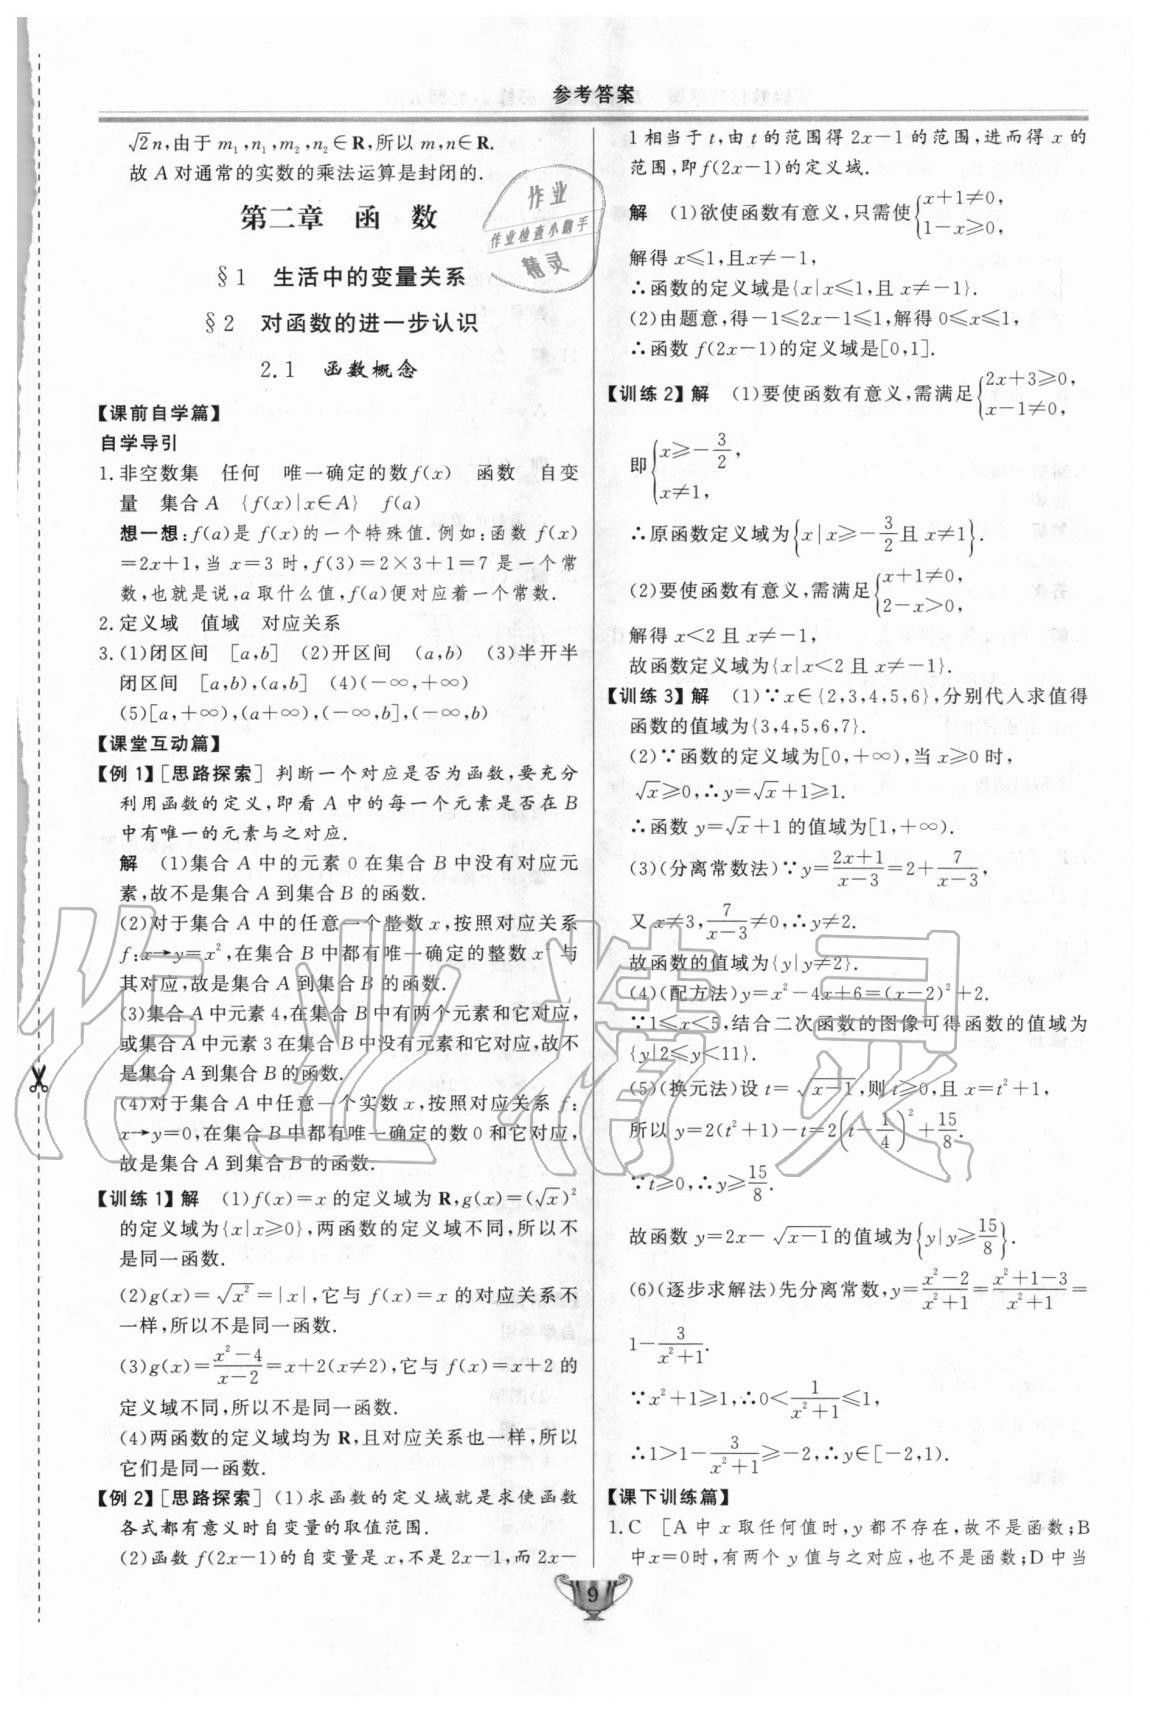 参考答案
√2n,由于 m₁,n₁,m₂,n₂∈R,所以 m,n∈R.
故 A 对通常的实数的乘法运算是封闭的.
第二章 函 数
§1 生活中的变量关系
§2 对函数的进一步认识
2.1 函数概念
【课前自学篇】
自学导引
1.非空数集 任何 唯一确定的数f(x) 函数 自变
量 集合A {f(x)|x∈A} f(a)
想一想:f(a)是 f(x)的一个特殊值.例如:函数 f(x)
=2x+1,当 x=3 时,f(3)=2×3+1=7 是一个常
数,也就是说,a取什么值,f(a)便对应着一个常数.
2.定义域 值域 对应关系
3.(1)闭区间 [a,b] (2)开区间 (a,b) (3)半开半
闭区间 [a,b),(a,b] (4)(-∞,+∞)
(5)[a,+∞),(a+∞),(-∞,b],(-∞,b)
【课堂互动篇】
【例1】[思路探索] 判断一个对应是否为函数,要充分
利用函数的定义,即看 A 中的每一个元素是否在 B
中有唯一的元素与之对应.
解 (1)集合 A 中的元素 0 在集合 B 中没有对应元
素,故不是集合 A 到集合 B 的函数.
(2)对于集合 A 中的任意一个整数 x,按照对应关系
f:x→y=x²,在集合 B 中都有唯一确定的整数 x² 与
其对应,故是集合 A 到集合 B 的函数.
(3)集合 A 中元素 4,在集合 B 中有两个元素和它对应,
或集合 A 中元素 3 在集合 B 中没有元素和它对应,故不
是集合 A 到集合 B 的函数.
(4)对于集合 A 中任意一个实数 x,按照对应关系 f:
x→y=0,在集合 B 中都有唯一确定的数 0 和它对应,
故是集合 A 到集合 B 的函数.
【训练1】解 (1)f(x)=x 的定义域为 R,g(x)=(√x)²
的定义域为{x|x≥0},两函数的定义域不同,所以不
是同一函数.
(2)g(x)=√x²=|x|,它与 f(x)=x 的对应关系不
一样,所以不是同一函数.
(3)g(x)=(x²-4)/(x-2)=x+2(x≠2),它与 f(x)=x+2 的
定义域不同,所以不是同一函数.
(4)两函数的定义域均为 R,且对应关系也一样,所以
它们是同一函数.
【例2】[思路探索] (1)求函数的定义域就是求使函数
各式都有意义时自变量的取值范围.
(2)函数 f(2x-1)的自变量是 x,不是 2x-1,而 2x-
1 相当于 t,由 t 的范围得 2x-1 的范围,进而得 x 的
范围,即 f(2x-1)的定义域.
解 (1)欲使函数有意义,只需使{x+1≠0,
1-x≥0,
解得 x≤1,且x≠-1,
∴函数的定义域是{x|x≤1,且 x≠-1}.
(2)由题意,得-1≤2x-1≤1,解得 0≤x≤1,
∴函数 f(2x-1)的定义域是[0,1].
【训练2】解 (1)要使函数有意义,需满足{2x+3≥0,
x-1≠0,
即{x≥-3/2,
x≠1,
∴原函数定义域为{x|x≥-3/2且 x≠1}.
(2)要使函数有意义,需满足{x+1≠0,
2-x>0,
解得 x<2 且 x≠-1,
故函数定义域为{x|x<2 且 x≠-1}.
【训练3】解 (1)∵x∈{2,3,4,5,6},分别代入求值得
函数的值域为{3,4,5,6,7}.
(2)∵函数的定义域为[0,+∞),当 x≥0 时,
√x≥0,∴y=√x+1≥1.
∴函数 y=√x+1 的值域为[1,+∞).
(3)(分离常数法)∵y=(2x+1)/(x-3)=2+7/(x-3),
又 x≠3,7/(x-3)≠0,∴y≠2.
故函数的值域为{y|y≠2}.
(4)(配方法)y=x²-4x+6=(x-2)²+2.
∵1≤x<5,结合二次函数的图像可得函数的值域为
{y|2≤y<11}.
(5)(换元法)设 t=√(x-1),则 t≥0,且 x=t²+1,
所以 y=2(t²+1)-t=2(t-1/4)²+15/8.
∵t≥0,∴y≥15/8.
故函数 y=2x-√(x-1)的值域为{y|y≥15/8}.
(6)(逐步求解法)先分离常数,y=(x²-2)/(x²+1)=(x²+1-3)/(x²+1)=
1-3/(x²+1).
∵x²+1≥1,∴0<1/(x²+1)≤1,
∴1>1-3/(x²+1)≥-2,∴y∈[-2,1).
【课下训练篇】
1.C [A 中 x 取任何值时,y 都不存在,故不是函数;B
中x=0时,有两个 y 值与之对应,也不是函数;D中当
9
作业
作业检查小助手
精灵
作业精灵